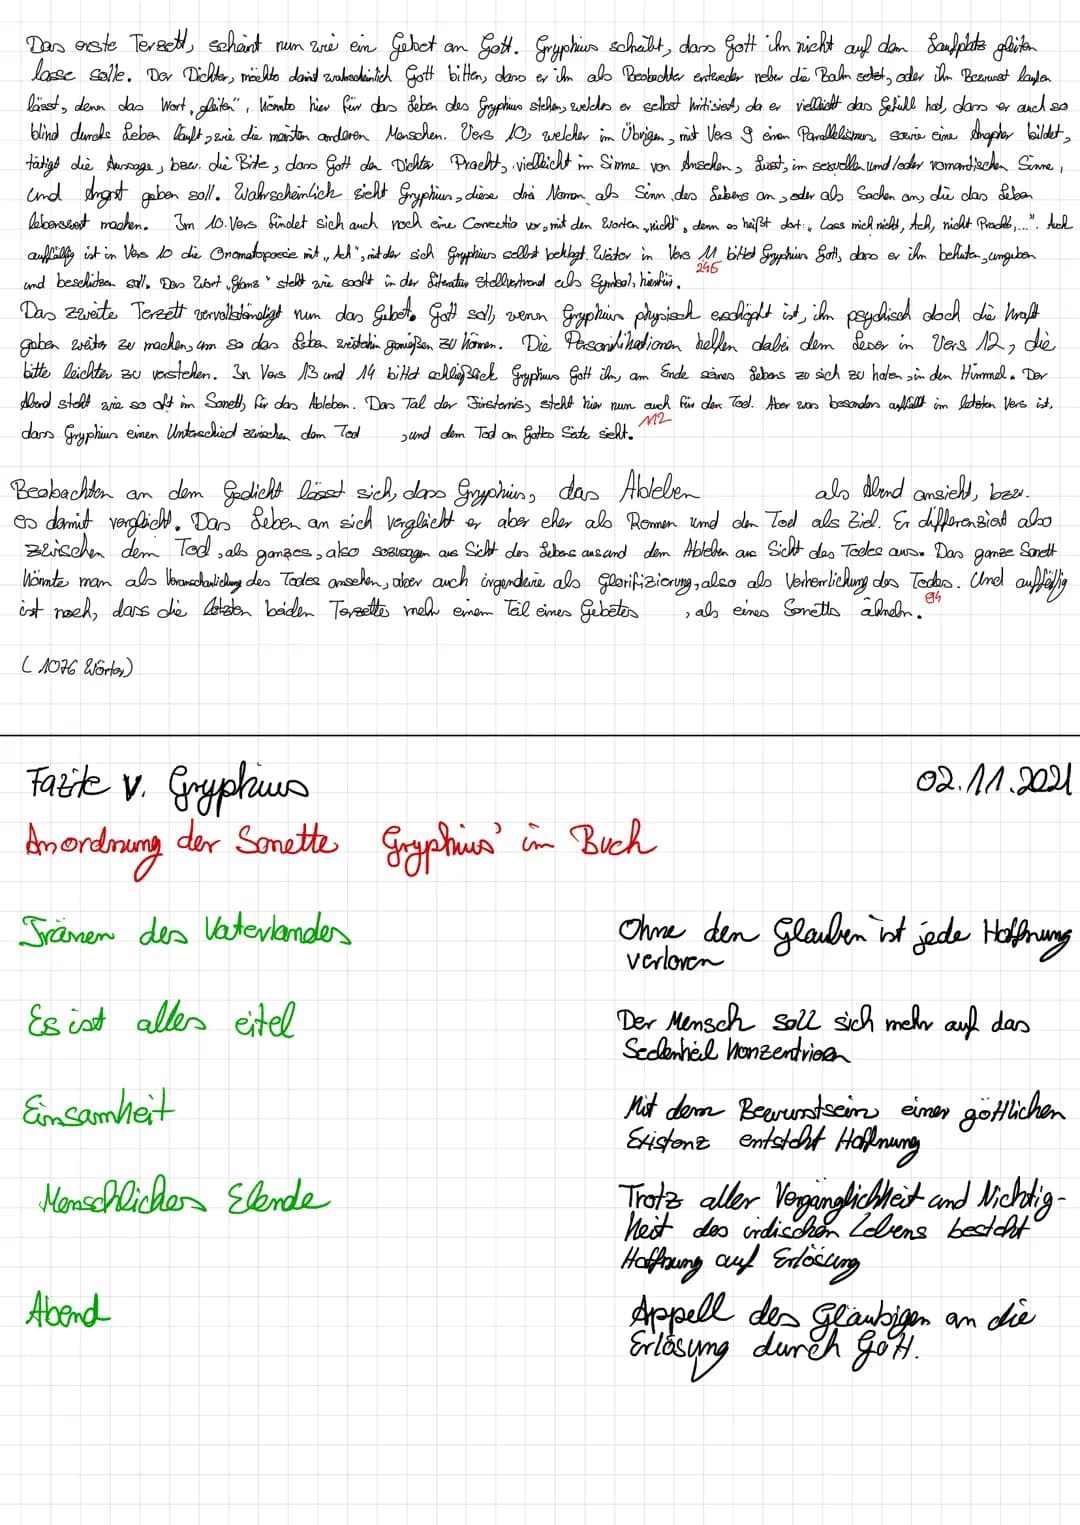 Das erste Terzett, scheint nun wie ein Gebet an Gott. Gryphius schreibt, dass Gott ihn nicht auf dem Laufplatz gleiten
lasse solle. Der Dichter, möchte damit wahrscheinlich Gott bitten, dass er ihn als Beobachter entweder neben die Bahn setzt, oder ihn Bewusst laufen
lässt, denn das Wort „gleiten", könnte hier für das Leben des Gryphius stehen, welches er selbst kritisiert, da er vielleicht das Gefühl hat, dass er auch so
blind durchs Leben läuft, wie die meisten anderen Menschen. Vers 10, welcher im Übrigen, mit Vers 9 einen Parallelismus, sowie eine Anapher bildet,
tätigt die Aussage, bzw. die Bitte, dass Gott den Dichter Pracht, vielleicht im Sinne von Ansehen, Lust, im sexuellen und/oder romantischen Sinne,
und Angst geben soll. Wahrscheinlich sieht Gryphius, diese drei Nomen als Sinn des Lebens an, oder als Sachen an, die das Leben
lebenswert machen. Im 10. Vers findet sich auch noch eine Correctio vor, mit den Worten „nicht", denn es heißt dort: „Lass mich nicht, Ach, nicht Pracht,...". Auch
auffällig ist in Vers 10 die Onomatopoesie mit „Ach", mit der sich Gryphius selbst beklagt. Weiter in Vers 11 bittet Gryphius Gott, dass er ihn behüten, umgeben
und beschützen soll. Das Wort „Glanz" steht wie sooft in der Literatur Stellvertrend als Symbol, hierfür.
245
Das zweite Terzett vervollständigt nun das Gebet. Gott soll, wenn Gryphius physisch erschöpft ist, ihm psychisch doch die Kraft
geben weiter zu machen, um so das Leben weiterhin genießen zu können. Die Personifikationen helfen dabei dem Leser in Vers 12, die
bitte leichter zu verstehen. In Vers 13 und 14 bittet schließlich Gryphius Gott ihn, am Ende seines Lebens zu sich zu holen, in den Himmel. Der
Abend steht wie so oft im Sonett, für das Ableben. Das Tal der Finsternis, steht hier nun auch für den Tod. Aber was besonders auffällt im letzten Vers ist,
dass Gryphius einen Unterschied zwischen dem Tod , und dem Tod an Gottes Seite sieht.
112
Beobachten an dem Gedicht lässt sich, dass Gryphius, das Ableben als Abend ansieht, bzw.
es damit vergleicht. Das Leben an sich vergleicht er aber eher als Rennen und den Tod als Ziel. Er differenziert also
zwischen dem Tod, als ganzes, also sozusagen aus Sicht des Lebens aus und dem Ableben aus Sicht des Todes aus. Das ganze Sonett
könnte man als Veranschaulichung des Todes ansehen, aber auch irgendwie als Glorifizierung, also als Verherrlichung des Todes. Und auffällig
ist noch, dass die letzten beiden Terzette mehr einem Teil eines Gebetes , als eines Sonetts ähneln.
94
(1076 Wörter)
Fazite v. Gryphius 02.11.2021
Anordnung der Sonette Gryphius' im Buch
Tränen des Vaterlandes Ohne den Glauben ist jede Hoffnung
verloren
Es ist alles eitel Der Mensch soll sich mehr auf das
Seelenheil konzentrieren
Einsamkeit Mit dem Bewusstsein einer göttlichen
Existenz entsteht Hoffnung
Menschliches Elende Trotz aller Vergänglichkeit und Nichtig-
keit des irdischen Lebens besteht
Hoffnung auf Erlösung
Abend Appell des Gläubigen an die
Erlösung durch Gott.